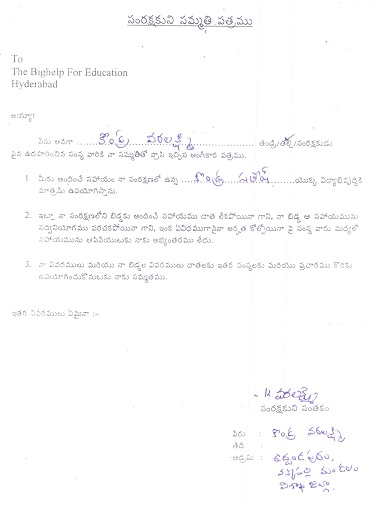 సంరక్షకుని సమ్మతి పత్రము
To
The Bighelp For Education
Hyderabad
అయ్యా!
నేను అనగా ....కొండ్ర వరలక్ష్మి.... తండ్రి/తల్లి/సంరక్షకుడు
పైన ఉదహరించిన సంస్థ వారికి నా సమ్మతితో వ్రాసి ఇచ్చిన అంగీకార పత్రము.
1. మీరు అందించే సహాయం నా సంరక్షణలో ఉన్న ....కొండ్ర సతీష్....యొక్క విద్యాభివృద్ధికి
మాత్రమే ఉపయోగిస్తాను.
2. ఇట్లా నా సంరక్షణలోని బిడ్డకు అందించే సహాయము దాత లేకపోయినా గాని, నా బిడ్డ ఆ సహాయమును
సద్వినియోగము పరచకపోయినా గాని, ఇంక ఏవిధముగానైనా అర్హత కోల్పోయినా పై సంస్థ వారు మధ్యలో
సహాయమును ఆపివేయుటకు నాకు అభ్యంతరము లేదు.
3. నా వివరములు మరియు నా బిడ్డల వివరములు దాతలకు ఇతర సంస్థలకు మరియు ప్రచారము కొరకు
ఉపయోగించుకొనుటకు నాకు సమ్మతము.
ఇతర వివరములు ఏమైనా :-
K వరలక్ష్మి
సంరక్షకుని సంతకం
పేరు : కొండ్ర వరలక్ష్మి
తేది :
అడ్రసు : ఉద్దండపురం,
నక్కపల్లి మండలం
విశాఖ జిల్లా.